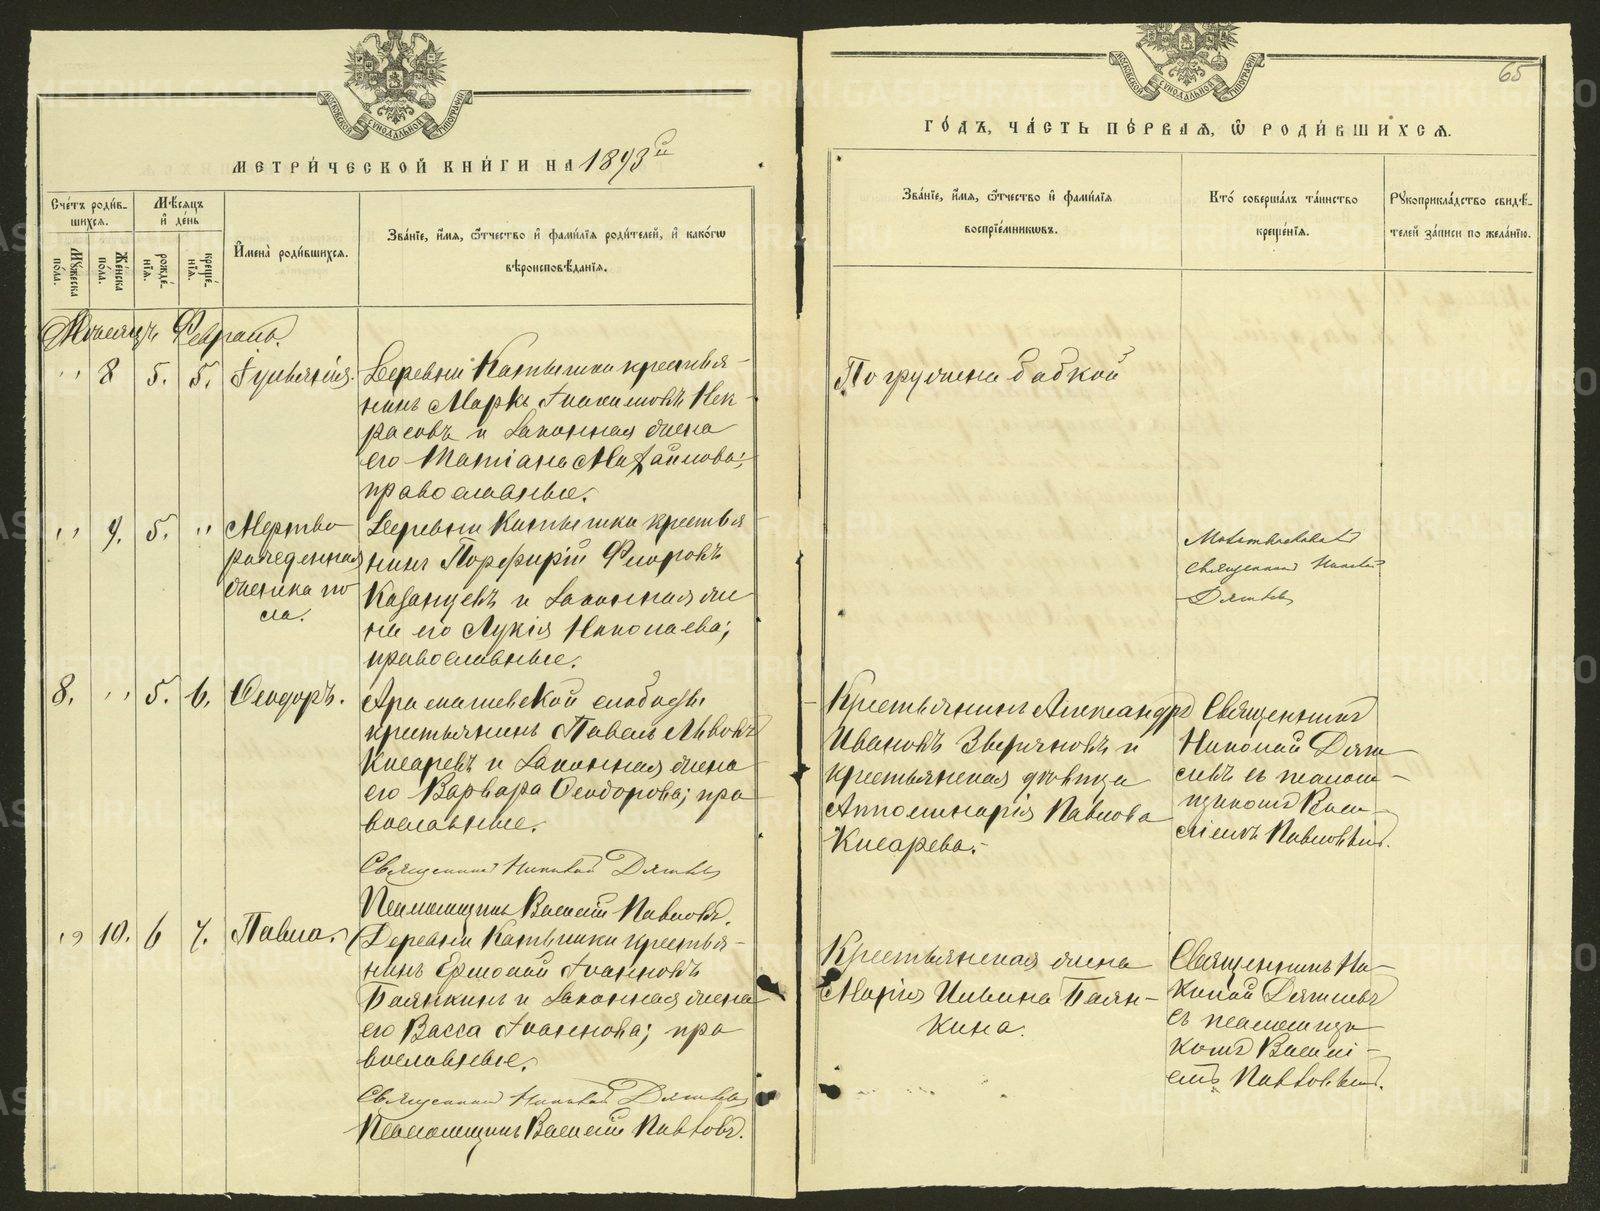 МОСКОВСКОЙ СУНОДАЛЬНОЙ ТИПОГРАФІИ
МЕТРИ́ЧЕСКОЙ КНИ́ГИ НА 1893й
Сче́тъ роди́в-
шихсѧ.
Мꙋ́жеска
по́ла.
Же́нска
по́ла.
Мѣ́сѧцъ
и҆ де́нь
рожде́-
нїѧ.
креще́-
нїѧ.
И҆мена̀ роди́вшихсѧ.
Зва́нїе, и҆́мѧ, ѻ҆́тчество и҆ фами́лїѧ роди́телей, и҆ како́гѡ
вѣроисповѣ́данїѧ.
Мѣсяцъ Февраль.
,, 8 5. 5. Іуліанія.
Деревни Катышки крестья-
нинъ Маркъ Іоакимовъ Нек-
расовъ и законная жена
его Татіана Михайлова;
православные.
,, 9. 5. ,, Мертво-
рожденная
женска по
ла.
Деревни Катышки крестья-
нинъ Порфирій Ѳеоровъ
Казанцевъ и законная же
на его Лукія Николаева;
православные.
8. ,, 5. 6. Ѳеодоръ.
Арамашевской слободы
крестьянинъ Павелъ Львовъ
Кисаревъ и законная жена
его Варвара Ѳеодорова; пра
вославные.
Священникъ Николай Дягилевъ
Псаломщикъ Василій Павловъ.
,, 10. 6 7. Павла.
Деревни Катышки крестья-
нинъ Ермолай Іоанновъ
Баянкинъ и законная жена
его Васса Іоаннова; пра
вославные.
Священникъ Николай Дягилевъ
Псаломщикъ Василій Павловъ.
65
МОСКОВСКОЙ СУНОДАЛЬНОЙ ТИПОГРАФІИ
ГО́ДЪ, ЧА́СТЬ ПЕ́РВАѦ, Ѽ РОДИ́ВШИХСѦ.
Зва́нїе, и҆́мѧ, ѻ҆́тчество и҆ фами́лїѧ
воспрїе́мникѡвъ.
Кто́ соверша́лъ та́инство
креще́нїѧ.
Рꙋкоприкла́дство свидѣ́-
телей за́писи по жела́нїю.
Погружена бабкой
Молитвовалъ
Священникъ Николай
Дягилевъ
Крестьянинъ Александръ
Ивановъ Зверяновъ и
крестьянская дѣвица
Апполинарія Павлова
Кисарева.-
Священникъ
Николай Дяги
левъ съ псалом-
щикомъ Васи-
ліемъ Павловымъ.
Крестьянская жена
Марія Ильина Баян-
кина.
Священникъ Ни-
колай Дягилевъ
съ псаломщи
комъ Васили-
емъ Павловымъ.
METRIKI.GASO-URAL.RU